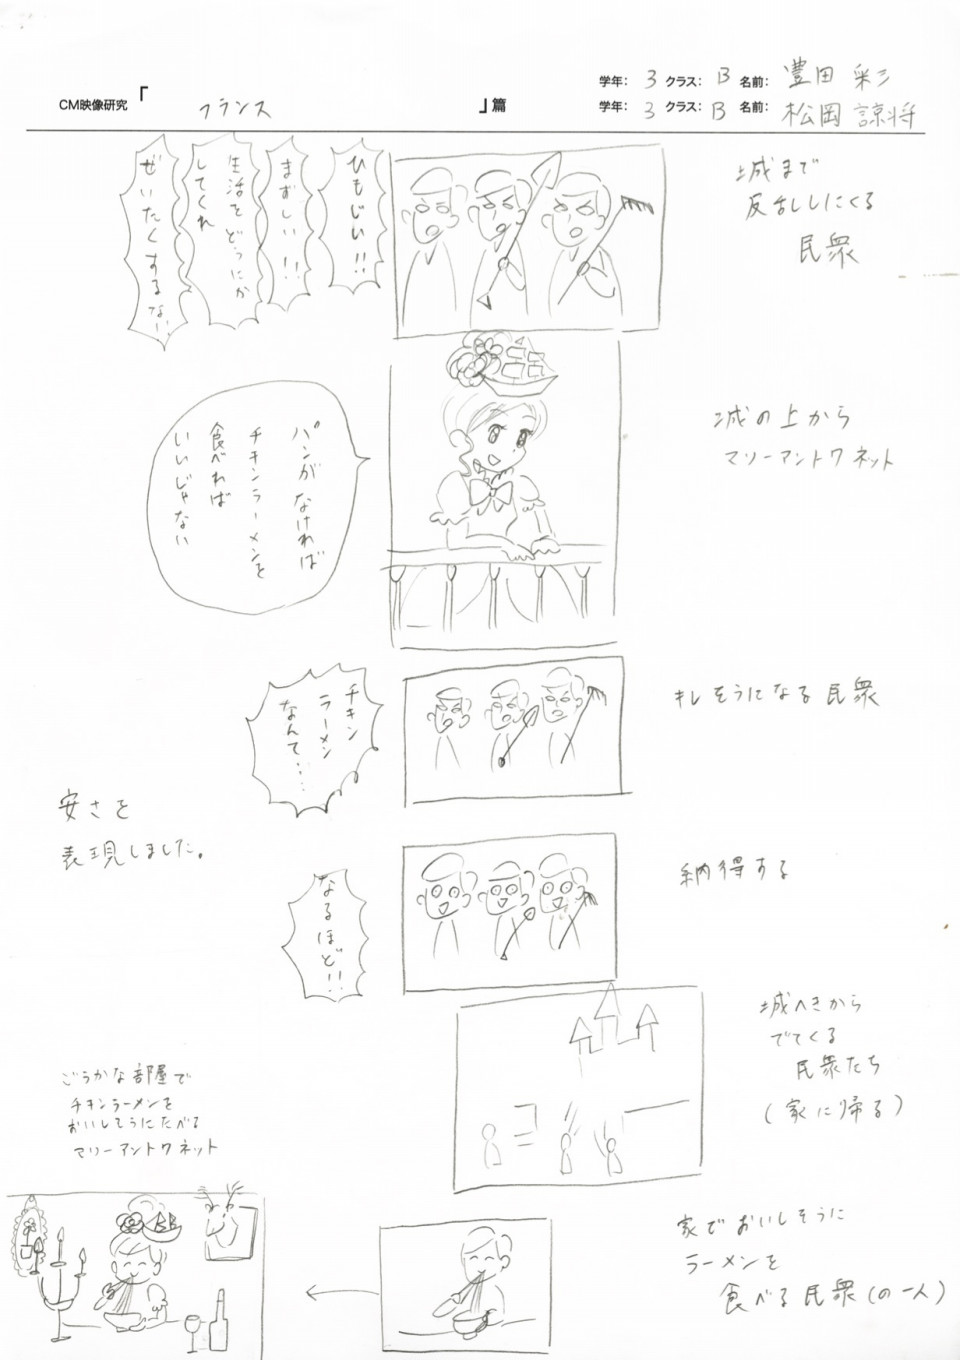 CM映像研究「 フランス 」篇
学年: 3 クラス: B 名前: 豊田 彩
学年: 3 クラス: B 名前: 松岡 諒将
ひもじい!!
まずしい!!
生活をどうにか
してくれ
ぜいたくするな!!
城まで
反乱しにくる
民衆
パンがなければ
チキンラーメンを
食べれば
いいじゃない
城の上から
マリーアントワネット
チキン
ラーメン
なんて・・・・
キレそうになる民衆
安さを
表現しました。
なるほど!!
納得する
城へきから
でてくる
民衆たち
(家に帰る)
ごうかな部屋で
チキンラーメンを
おいしそうにたべる
マリーアントワネット
家でおいしそうに
ラーメンを
食べる民衆(の一人)